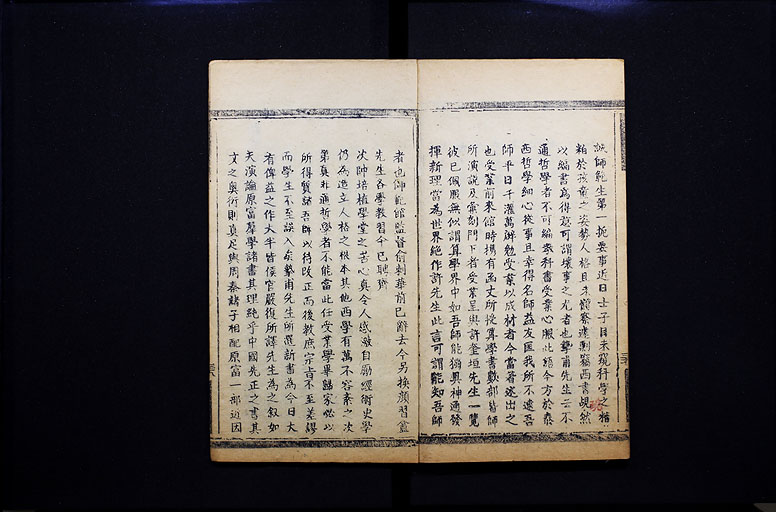 誠師範生第一扼要事近日士子目未窺科學之藩
類於孩童之姿勢人格且未觀察遽剽竊西書靦然
以編書為得意可謂壞事之尤者也摯甫先生云不
通哲學者不可編教科書受業心服此語今方於泰
西哲學細心從事且幸得名師益友匡我所不逮吾
師平日千灌萬辦勉受業以成材者今當著述出之
也受業前來館時携有函丈所授算學書數部皆師
所演說及彙刻門下者受業呈與許奎垣先生一覽
彼已佩服無似謂算學界中如吾師能獨具神通發
揮新理當為世界絕作許先生此言可謂能知吾師
者也師範館監督俞剌華前已辭去今另換顏習盦
先生各學教習今已聘
次帥培植學堂之苦心真令人感激自願經術史學
仍為造立人格之根本其他西學有萬不容紊之次
第真非通哲學者不能當此任受業學畢歸家必以
所得質諸吾師以待改正而後教庶宗旨不至差謬
而學生不至誤入矣摯甫先生所選新書為今日大
有俾益之作大半皆侯官嚴復所譯先生為之叙如
天演論原富羣學諸書其理純乎中國先正之書其
文之奧衍則真足與周秦諸子相配原富一部近因